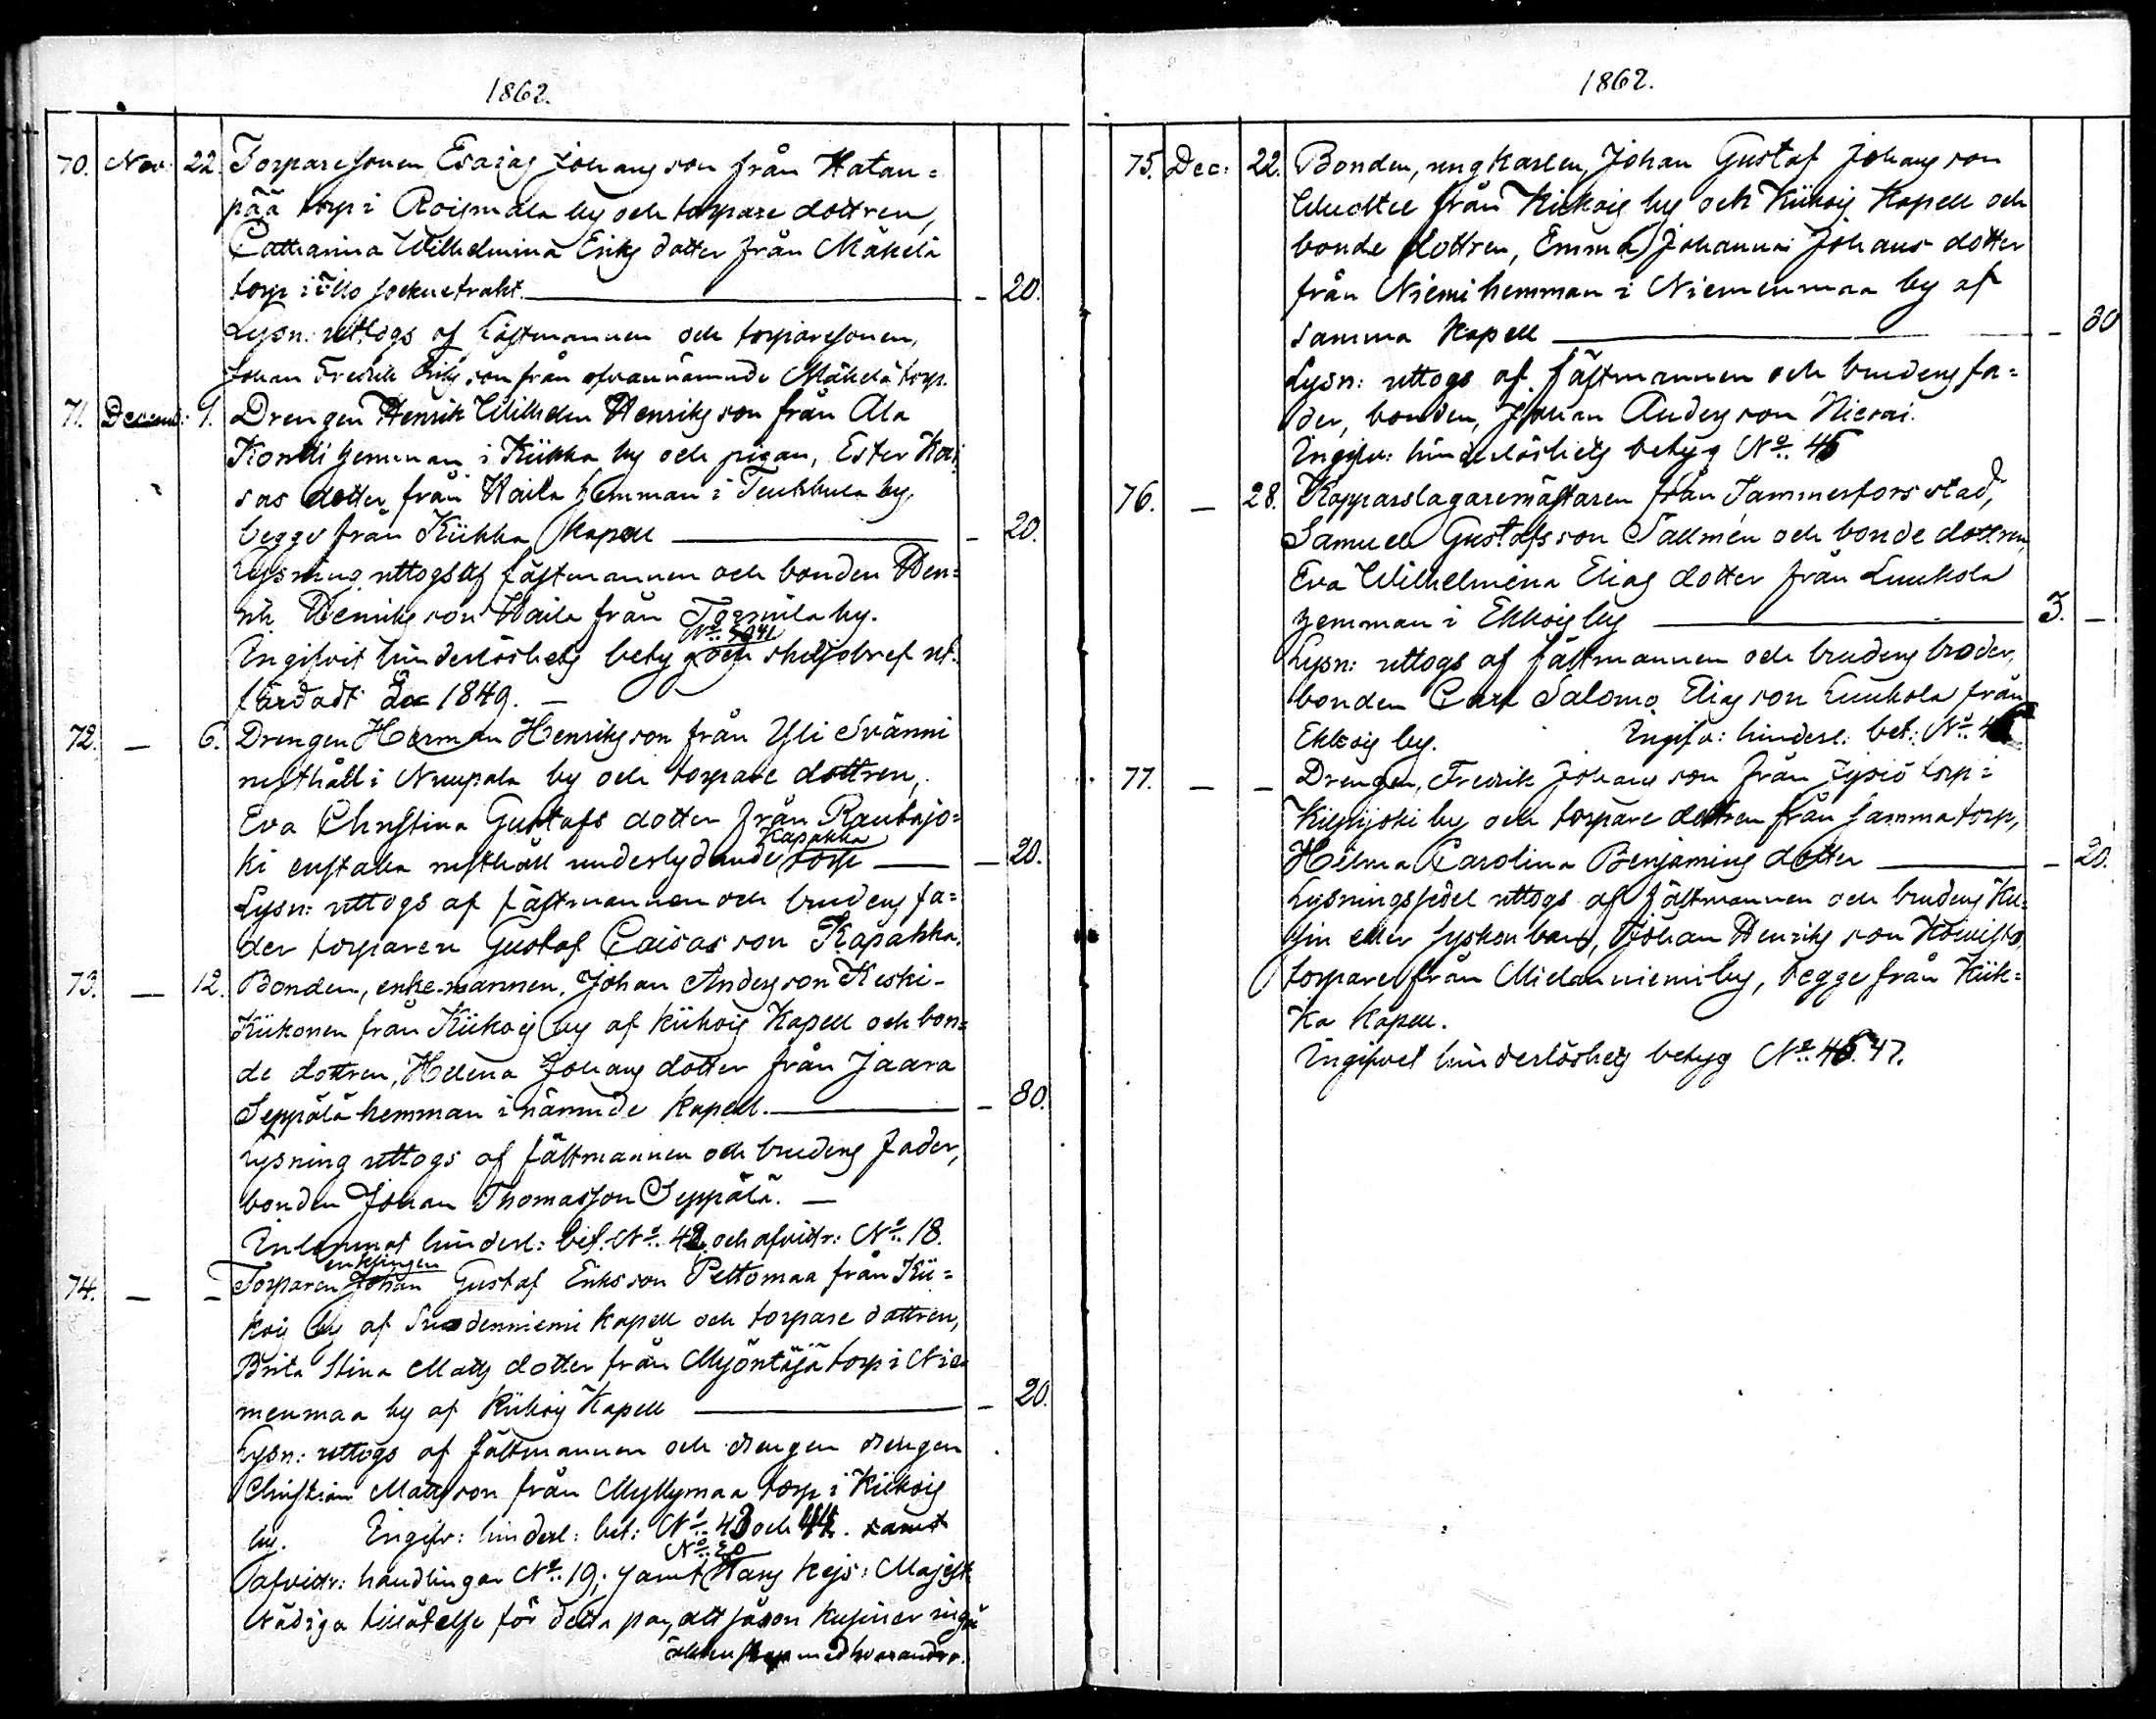 1862.
70. Nov: 22. Torparesonen Esaias Johansson från Hatan=
pää torp i Roismala by och torpare dottren,
Catharina Wilhelmina Eriks dotter från Mäkelä
torp i Illo sockne trakt. — 20.
Lysn: uttogs af fästmannen och torparesonen,
Johan Fredrik Eriksson från ofvannämnde Mäkelä torp.
71. Decemb: 1. Drengen Henrik Wilhelm Henriksson från Ala
Kontti hemman i Kiikka by och pigan, Ester Kai
sas dotter från Haila hemman i Teukkula by,
begge från Kiikka Kapell — 20.
Lysning uttogs af fästmannen och bonden Hen=
rik Henriksson Haila från by.
No: 41
Ingifvit hinderlöshets betyg och skiljobref ut=
färdadt 1849. —
72. — 6. Drengen Herman Henriksson från Yli Svänni
rusthåll i Nuupala by och torpare dottren,
Eva Christina Gustafs dotter från Rautajo=
Kapakka
ki enstaka rusthåll underlydande torp — 20.
Lysn: uttogs af fästmannen och brudens fa=
der torparen Gustaf Caisasson Kapakka.
73. — 12. Bonden, enke-mannen, Johan Andersson Keski-
Kiikonen från Kiikois by af Kiikois Kapell och bon=
de dottren, Helena Johans dotter från Jaara
Seppälä hemman i nämnde Kapell. — 30.
Lysning uttogs af fästmannen och brudens fader,
bonden Johan Thomasson Seppälä. —
Inlemnat hinderl: bet. No: 42. och afvittr: No: 18.
enklingen
74. — — Torparen Johan Gustaf Eriksson Peltomaa från Kii=
kois by af Suodenniemi Kapell och torpare dottren,
Brita Stina Matts dotter från Myöntäjä torp i Nie
menmaa by af Kiikois Kapell — 20.
Lysn: uttogs af fästmannen och drengen drengen
Christian Mattsson från Myllymaa torp i Kiikois
by. Ingifv: hinderl: bet: No: 43 och 44. samt
No: 20
afvittr: handlingar No: 19; samt Hans Kejs: Majest
Nådiga tillåtelse för detta par, att såson kusiner ingå
äktenskap med hvarandra.
1862.
75. Dec: 22. Bonden, ungkarlen, Johan Gustaf Johansson
från Kiikois by och Kiikois Kapell och
bonde dottren, Emma Johanna Johans dotter
från Niemi hemman i Niemenmaa by af
samma Kapell — 30
Lysn: uttogs af fästmannen och brudens fa=
der, bonden, Johan Andersson
Ingifv: hinderlöshets betyg No: 45
76. — 28. Kopparslagaremästaren från Tammerfors stad,
Samuel Gustafsson Sallmén och bonde dottren,
Eva Wilhelmina Elias dotter från Luukola
hemman i Ekkois by — 3. —
Lysn: uttogs af fästmannen och brudens broder,
bonden Carl Salomo Eliasson Luukola från
Ekkois by. Ingifv: hinderl: bet: No:
77. — — Drengen, Fredrik Johansson från Jysiö torp i
by och torpare dottren från samma torp,
Helena Carolina Benjamins dotter — 20.
Lysningssedel uttogs af fästmannen och brudens Ku=
sin eller syskonbarn, Johan Henriksson Koivisto,
torpare från Meldanniemi by, begge från Kiik=
ka Kapell.
Ingifvet hinderlöshets betyg No: 46. 47.